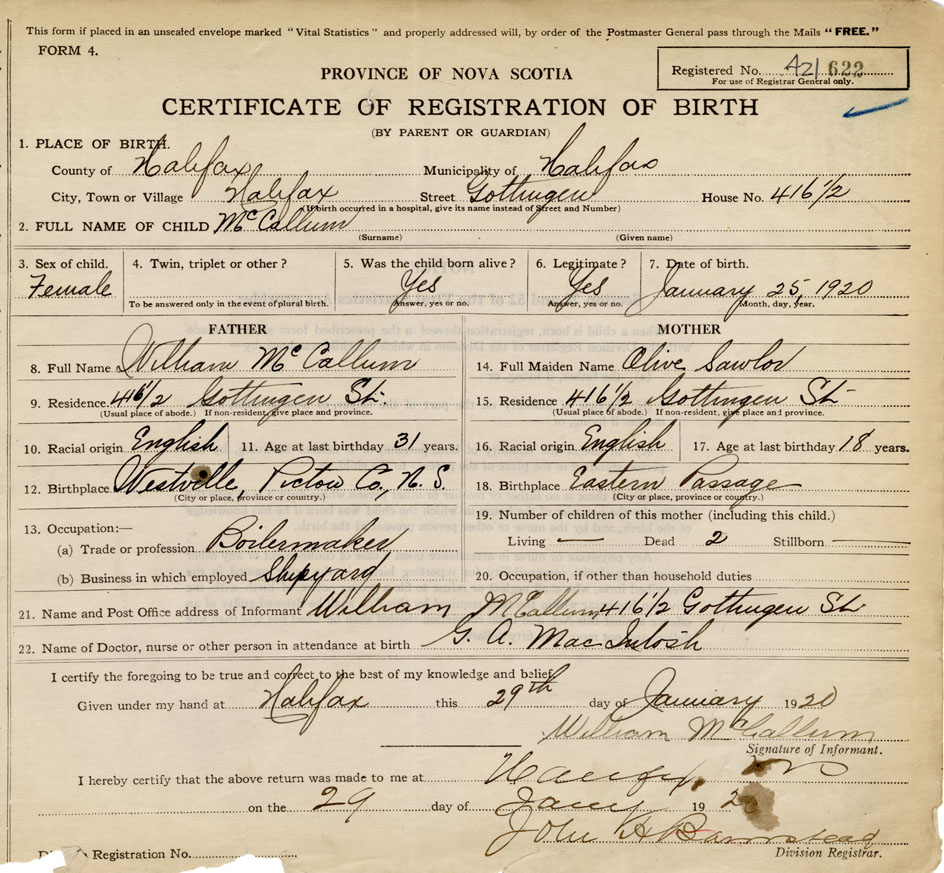 This form if placed in an unsealed envelope marked "Vital Statistics" and properly addressed will, by order of the Postmaster General pass through the Mails "FREE."
FORM 4.
PROVINCE OF NOVA SCOTIA
Registered No. 421 622
For use of Registrar General only.
CERTIFICATE OF REGISTRATION OF BIRTH
(BY PARENT OR GUARDIAN)
1. PLACE OF BIRTH.
County of Halifax Municipality of Halifax
City, Town or Village Halifax Street Gottingen House No. 416 1/2
(If birth occurred in a hospital, give its name instead of Street and Number)
2. FULL NAME OF CHILD McCallum
(Surname) (Given name)
3. Sex of child. 4. Twin, triplet or other? 5. Was the child born alive? 6. Legitimate? 7. Date of birth.
Female Yes Yes January 25, 1920
To be answered only in the event of plural birth. Answer, yes or no. Answer, yes or no. Month, day, year.
FATHER MOTHER
8. Full Name William McCallum 14. Full Maiden Name Olive Sawlor
9. Residence 416 1/2 Gottingen St. 15. Residence 416 1/2 Gottingen St
(Usual place of abode.) If non-resident, give place and province. (Usual place of abode.) If non-resident, give place and province.
10. Racial origin English 11. Age at last birthday 31 years. 16. Racial origin English 17. Age at last birthday 18 years.
12. Birthplace Westville, Pictou Co, N. S. 18. Birthplace Eastern Passage
(City or place, province or country.) (City or place, province or country.)
13. Occupation:— 19. Number of children of this mother (including this child.)
(a) Trade or profession Boilermaker Living — Dead 2 Stillborn —
(b) Business in which employed Shipyard 20. Occupation, if other than household duties
21. Name and Post Office address of Informant William McCallum 416 1/2 Gottingen St
22. Name of Doctor, nurse or other person in attendance at birth G. A. MacIntosh
I certify the foregoing to be true and correct to the best of my knowledge and belief.
Given under my hand at Halifax this 29th day of January 1920
William McCallum
Signature of Informant.
I hereby certify that the above return was made to me at Halifax
on the 29 day of Jany 19 20
John H Barnstead
Registration No. Division Registrar.